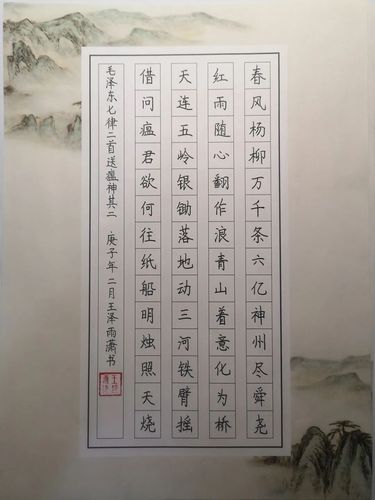 春风杨柳万千条六亿神州尽舜尧
红雨随心翻作浪青山着意化为桥
天连五岭银锄落地动三河铁臂摇
借问瘟君欲何往纸船明烛照天烧
毛泽东七律二首送瘟神其二 庚子年二月王泽雨潇书